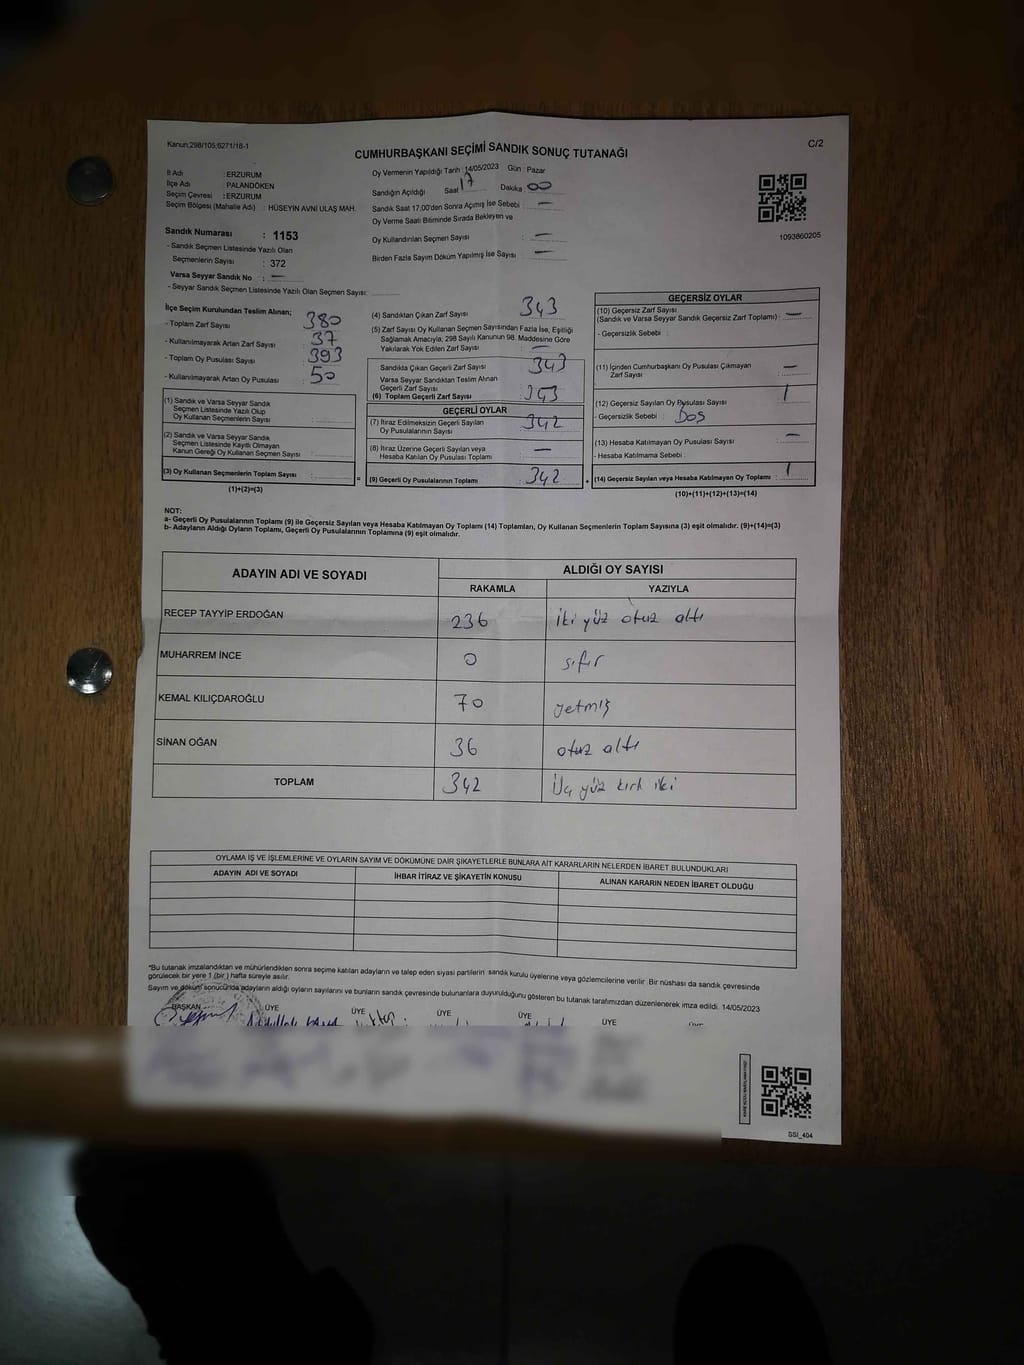 Kanun;298/105;6271/18-1
C/2
CUMHURBAŞKANI SEÇİMİ SANDIK SONUÇ TUTANAĞI
İl Adı : ERZURUM
İlçe Adı : PALANDÖKEN
Seçim Çevresi : ERZURUM
Seçim Bölgesi (Mahalle Adı) : HÜSEYİN AVNİ ULAŞ MAH.
Sandık Numarası : 1153
- Sandık Seçmen Listesinde Yazılı Olan
Seçmenlerin Sayısı : 372
Varsa Seyyar Sandık No : —
- Seyyar Sandık Seçmen Listesinde Yazılı Olan Seçmen Sayısı:
Oy Vermenin Yapıldığı Tarih :14/05/2023 Gün : Pazar
Sandığın Açıldığı Saat 17 Dakika 00
Sandık Saat 17.00'den Sonra Açımış İse Sebebi : —
Oy Verme Saati Bitiminde Sırada Bekleyen ve
Oy Kullandırılan Seçmen Sayısı : —
Birden Fazla Sayım Döküm Yapılmış İse Sayısı : —
1093860205
İlçe Seçim Kurulundan Teslim Alınan;
- Toplam Zarf Sayısı : 380
- Kullanılmayarak Artan Zarf Sayısı : 37
- Toplam Oy Pusulası Sayısı : 393
- Kullanılmayarak Artan Oy Pusulası : 50
(1) Sandık ve Varsa Seyyar Sandık
Seçmen Listesinde Yazılı Olup
Oy Kullanan Seçmenlerin Sayısı :
(2) Sandık ve Varsa Seyyar Sandık
Seçmen Listesinde Kayıtlı Olmayan
Kanun Gereği Oy Kullanan Seçmen Sayısı :
(3) Oy Kullanan Seçmenlerin Toplam Sayısı :
(1)+(2)=(3)
(4) Sandıktan Çıkan Zarf Sayısı : 343
(5) Zarf Sayısı Oy Kullanan Seçmen Sayısından Fazla İse, Eşitliği
Sağlamak Amacıyla; 298 Sayılı Kanunun 98. Maddesine Göre
Yakılarak Yok Edilen Zarf Sayısı : —
Sandıkla Çıkan Geçerli Zarf Sayısı : 343
Varsa Seyyar Sandıktan Teslim Alınan
Geçerli Zarf Sayısı
(6) Toplam Geçerli Zarf Sayısı : 343
GEÇERLİ OYLAR
(7) İtiraz Edilmeksizin Geçerli Sayılan
Oy Pusulalarının Sayısı : 342
(8) İtiraz Üzerine Geçerli Sayılan veya
Hesaba Katılan Oy Pusulası Toplamı : —
(9) Geçerli Oy Pusulalarının Toplamı : 342
GEÇERSİZ OYLAR
(10) Geçersiz Zarf Sayısı
(Sandık ve Varsa Seyyar Sandık Geçersiz Zarf Toplamı) : —
- Geçersizlik Sebebi :
(11) İçinden Cumhurbaşkanı Oy Pusulası Çıkmayan
Zarf Sayısı : —
(12) Geçersiz Sayılan Oy Pusulası Sayısı : 1
- Geçersizlik Sebebi : Boş
(13) Hesaba Katılmayan Oy Pusulası Sayısı : —
- Hesaba Katılmama Sebebi :
(14) Geçersiz Sayılan veya Hesaba Katılmayan Oy Toplamı : 1
(10)+(11)+(12)+(13)=(14)
NOT:
a- Geçerli Oy Pusulalarının Toplamı (9) ile Geçersiz Sayılan veya Hesaba Katılmayan Oy Toplamı (14) Toplamları, Oy Kullanan Seçmenlerin Toplam Sayısına (3) eşit olmalıdır. (9)+(14)=(3)
b- Adayların Aldığı Oyların Toplamı, Geçerli Oy Pusulalarının Toplamına (9) eşit olmalıdır.
ADAYIN ADI VE SOYADI ALDIĞI OY SAYISI
RAKAMLA YAZIYLA
RECEP TAYYİP ERDOĞAN 236 iki yüz otuz altı
MUHARREM İNCE 0 sıfır
KEMAL KILIÇDAROĞLU 70 yetmiş
SİNAN OĞAN 36 otuz altı
TOPLAM 342 Üç yüz kırk iki
OYLAMA İŞ VE İŞLEMLERİNE VE OYLARIN SAYIM VE DÖKÜMÜNE DAİR ŞİKAYETLERLE BUNLARA AİT KARARLARIN NELERDEN İBARET BULUNDUKLARI
ADAYIN ADI VE SOYADI İHBAR İTİRAZ VE ŞİKAYETİN KONUSU ALINAN KARARIN NEDEN İBARET OLDUĞU
*Bu tutanak imzalandıktan ve mühürlendikten sonra seçime katılan adayların ve talep eden siyasi partilerin sandık kurulu üyelerine veya gözlemcilerine verilir .Bir nüshası da sandık çevresinde
görülecek bir yere 1 (bir ) hafta süreyle asılır.
Sayım ve döküm sonucunda adayların aldığı oyların sayılarını ve bunların sandık çevresinde bulunanlara duyurulduğunu gösteren bu tutanak tarafımızdan düzenlenerek imza edildi. 14/05/2023
BAŞKAN ÜYE ÜYE ÜYE ÜYE ÜYE
SSI_404